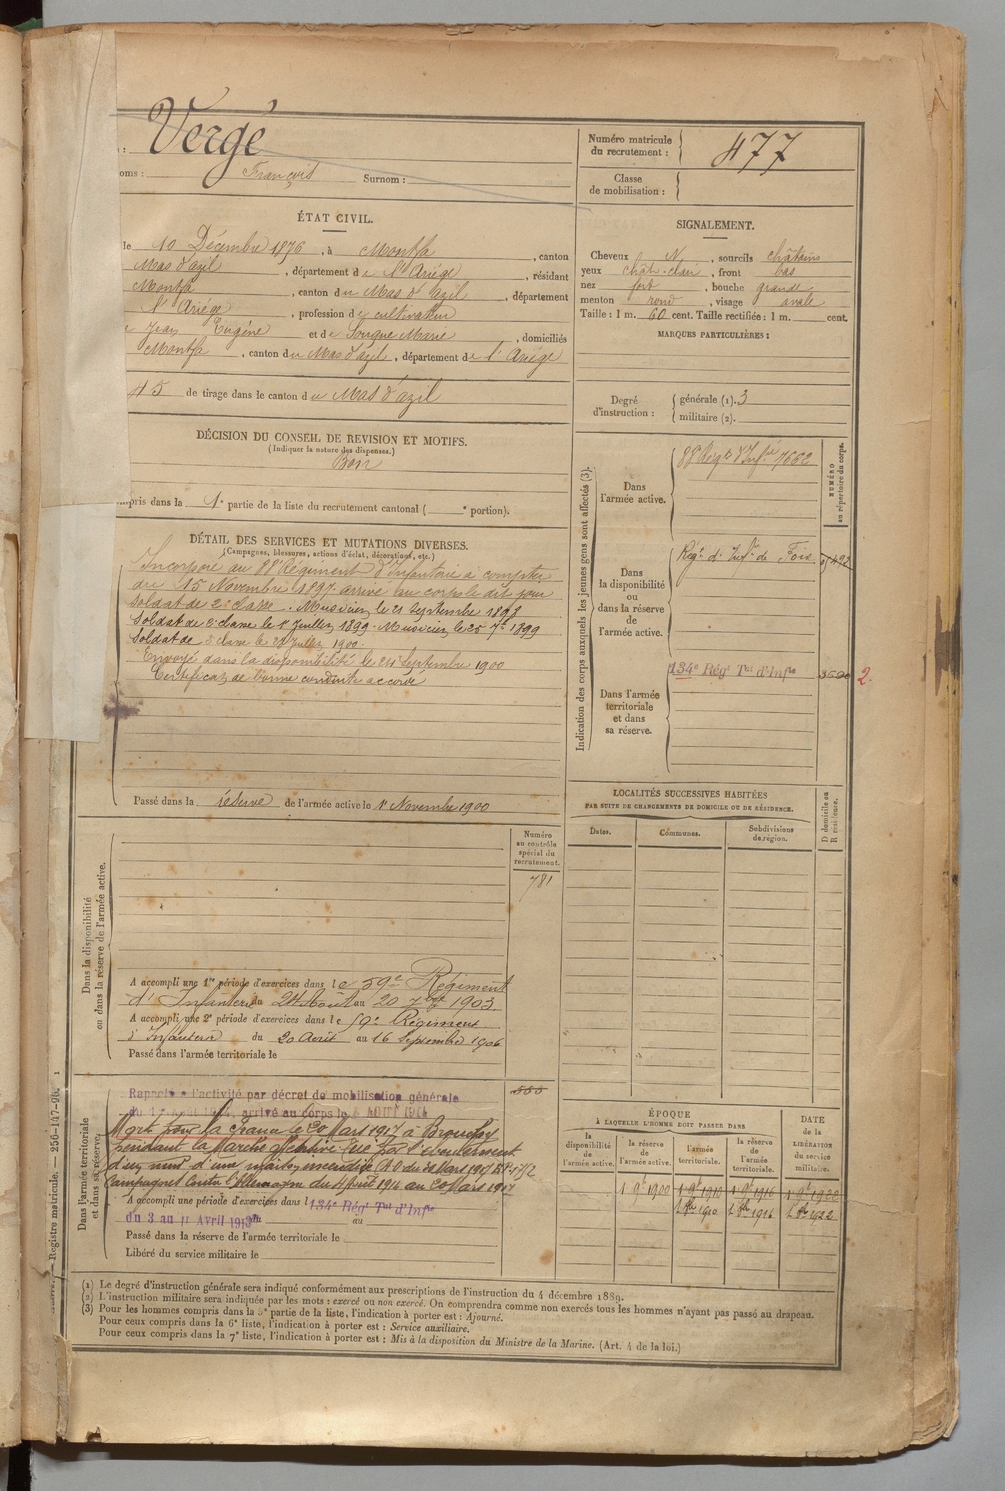 : Vergé
oms : François Surnom :
Numéro matricule du recrutement : 477
Classe de mobilisation :
ÉTAT CIVIL.
le 10 Décembre 1876, à Montfa, canton
Mas d'azil, département de l'Ariége, résidant
Montfa, canton du Mas d'azil, département
l'Ariége, profession de cultivateur
Jean Eugéne et de Souque Marie, domiciliés
Montfa, canton du Mas d'azil, département de l'Ariége
45 de tirage dans le canton du Mas d'azil
SIGNALEMENT.
Cheveux N, sourcils châtains
yeux chât-clair, front bas
nez fort, bouche grande
menton rond, visage ovale
Taille : 1 m. 60 cent. Taille rectifiée : 1 m. cent.
MARQUES PARTICULIÈRES :
Degré d'instruction :
générale (1). 3
militaire (2).
DÉCISION DU CONSEIL DE REVISION ET MOTIFS.
(Indiquer la nature des dispenses.)
Bon
mpris dans la 1e partie de la liste du recrutement cantonal ( e portion).
DÉTAIL DES SERVICES ET MUTATIONS DIVERSES.
(Campagnes, blessures, actions d'éclat, décorations, etc.)
Incorporé au 88e Régiment d'Infanterie à compter
du 15 Novembre 1897 arrivé au corps le dit jour
soldat de 2e classe. Musicien le 21 Septembre 1898
Soldat de 2e classe le 1er Juillet 1899. Musicien le 25 7bre 1899
Soldat de 2 classe le 28 Juillet 1900.
Envoyé dans la disponibilité le 21 Septembre 1900
Certificat de bonne conduite accordé
Passé dans la réserve de l'armée active le 1er Novembre 1900
Indication des corps auxquels les jeunes gens sont affectés (3).
NUMÉRO au répertoire du corps.
Dans l'armée active.
88 Régt d'Infie 7662
Dans la disponibilité ou dans la réserve de l'armée active.
Régt d'Infie de Foix
Dans l'armée territoriale et dans sa réserve.
134e Régt Tal d'Infie
2.
LOCALITÉS SUCCESSIVES HABITÉES
PAR SUITE DE CHANGEMENTS DE DOMICILE OU DE RÉSIDENCE.
Dates. Communes. Subdivisions de région. D domicile ou R résidence.
Dans la disponibilité ou dans la réserve de l'armée active.
Numéro au contrôle spécial du recrutement.
781
A accompli une 1re période d'exercices dans le 59e Régiment
d'Infanterie du 24 Août au 20 7bre 1903.
A accompli une 2e période d'exercices dans le 59e Régiment
d'Infanterie du 20 Août au 16 Septembre 1906
Passé dans l'armée territoriale le
Dans l'armée territoriale et dans sa réserve.
Rappelé à l'activité par décret de mobilisation générale
du 1 Août 1914, arrivé au corps le 4 AOUT 1914
Mort pour la France le 20 Mars 1917 à Brouchy
pendant la Marche offensive Tué par l'écroulement
d'un mur d'une maison incendiée
Campagnes Contre l'Allemagne du 4 Août 1914 au 20 Mars 1917
A accompli une période d'exercices dans l 134e Régt Tal d'Infie
du 3 au 11 Avril 1913 au
Passé dans la réserve de l'armée territoriale le
Libéré du service militaire le
ÉPOQUE
À LAQUELLE L'HOMME DOIT PASSER DANS
la disponibilité de l'armée active.
la réserve de l'armée active.
l'armée territoriale.
la réserve de l'armée territoriale.
DATE de la LIBÉRATION du service militaire.
1 9e 1900 1 9e 1910 1 9e 1916 1 9e 1922
1 8bre 1910 1 8bre 1916 1 8bre 1922
(1) Le degré d'instruction générale sera indiqué conformément aux prescriptions de l'instruction du 4 décembre 1889.
(2) L'instruction militaire sera indiquée par les mots : exercé ou non exercé. On comprendra comme non exercés tous les hommes n'ayant pas passé au drapeau.
(3) Pour les hommes compris dans la 5e partie de la liste, l'indication à porter est : Ajourné.
Pour ceux compris dans la 6e liste, l'indication à porter est : Service auxiliaire.
Pour ceux compris dans la 7e liste, l'indication à porter est : Mis à la disposition du Ministre de la Marine. (Art. 4 de la loi.)
— Registre matricule. — 256-147-96.